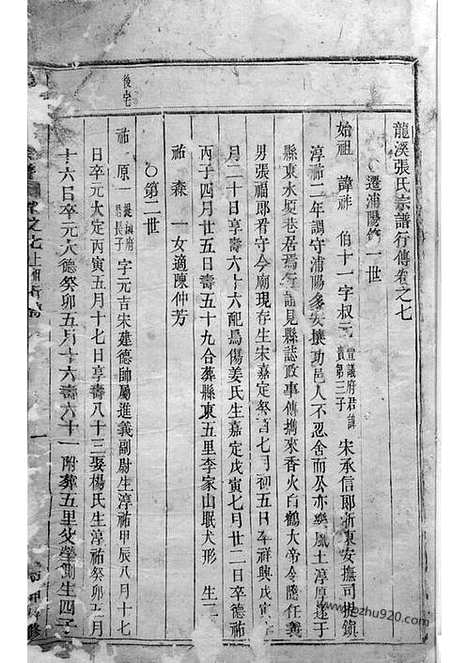 龍溪張氏宗譜行傳卷之七
○遷浦陽第一世
始祖 諱祚 伯十一字叔元 宣議府君諱賁第三子 宋承信郎浙東安撫司提鎮
淳祐二年調守浦陽多安攘功邑人不忍舍而公亦樂風土淳厚遂于
縣東水埧巷居焉行誼見縣誌政事傳攜來香火白鶴大帝令隨任義
男張福郎看守今廟現存生宋嘉定癸酉七月初五日卒祥興戊寅
月二十日享壽六十六配烏傷姜氏生嘉定戊寅七月廿二日卒德祐
丙子四月廿五日壽五十九合葬縣東五里李家山眠犬形 生二
祐 森 一女適陳仲芳
○第二世
後宅 祐 原一 提鎮府君長子 字元吉宋建德帥屬進義副尉生淳祐甲辰八月十七
日卒元大定丙寅五月十七日享壽八十三娶楊氏生淳祐癸卯五月
十六日卒元大德癸卯五月十六壽六十一附葬五里父塋側生四子
卷之七上
一